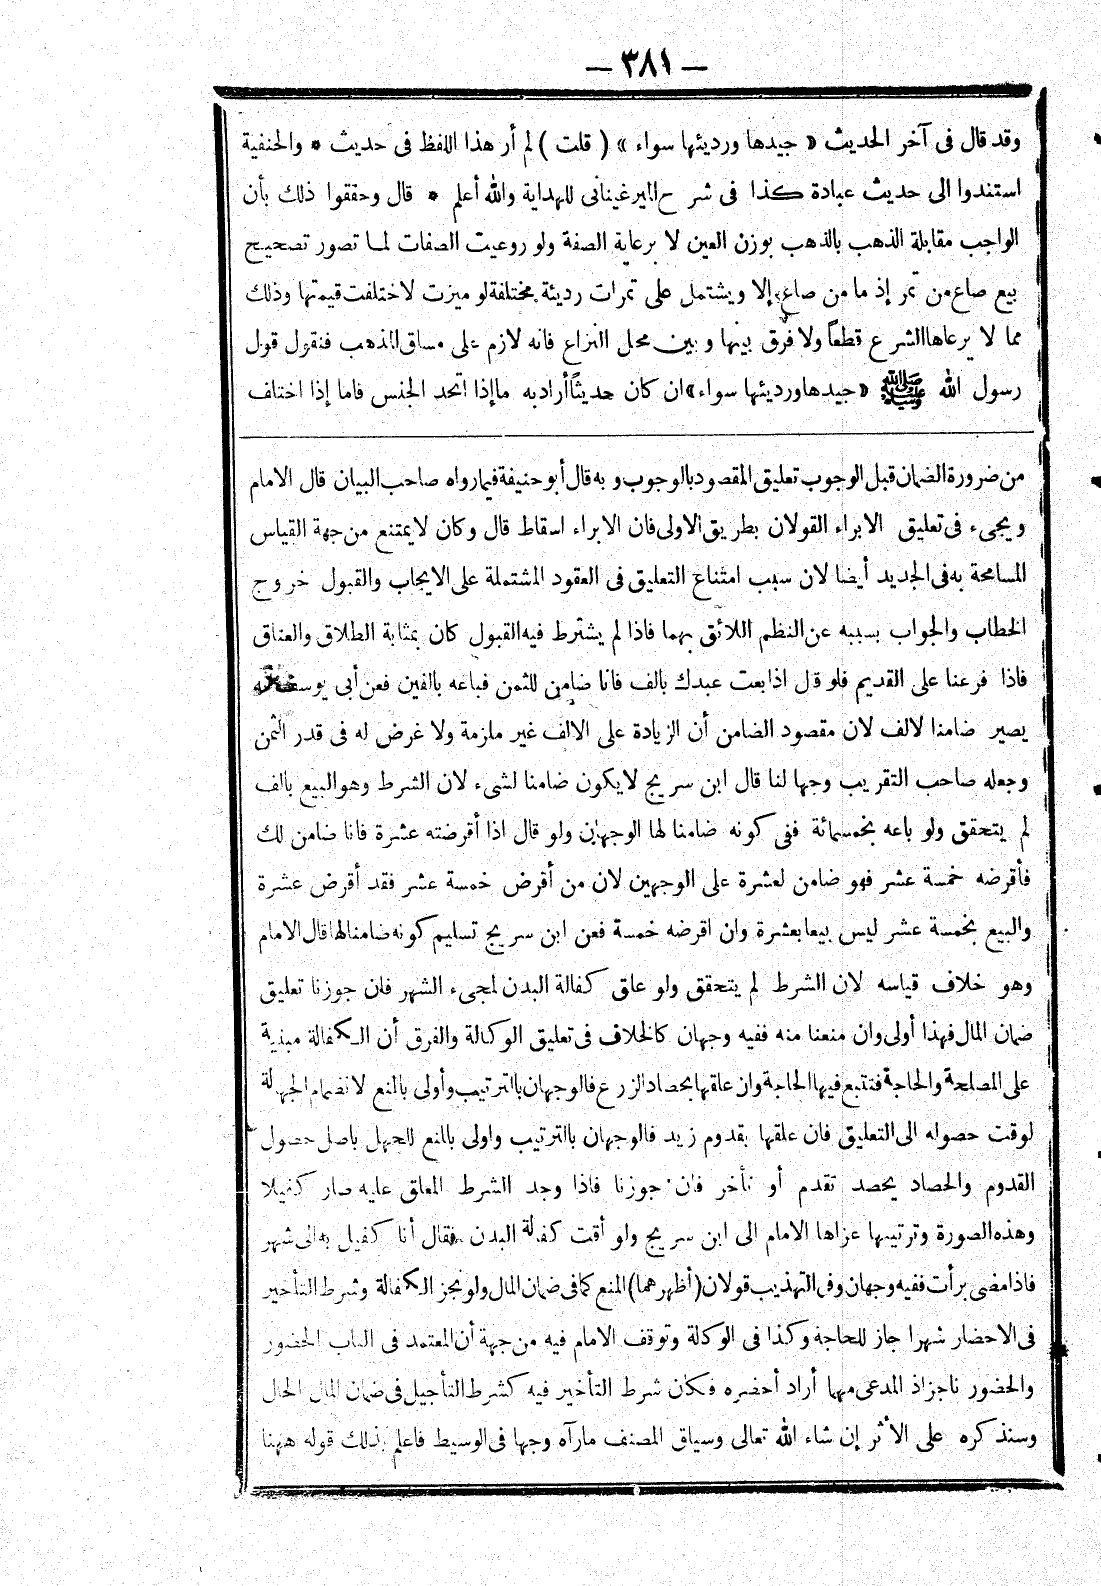 — ٣٨١ —
وقد قال فى آخر الحديث « جيدها ورديئها سواء » ( قلت ) لم أر هذا اللفظ فى حديث * والحنفية
استندوا الى حديث عبادة كذا فى شرح المرغينانى للهداية والله أعلم * قال وحققوا ذلك بأن
الواجب مقابلة الذهب بالذهب بوزن العين لا برعاية الصفة ولو روعيت الصفات لما تصور تصحيح
بيع صاع من تمر إذ ما من صاع إلا ويشتمل على تمرات رديئة مختلفة لو ميزت لاختلفت قيمتها وذلك
مما لا يرعاها الشرع قطعاً ولا فرق بينها وبين محل النزاع فانه لازم على مساق المذهب فنقول قول
رسول الله ﷺ «جيدها ورديئها سواء» ان كان حديثاً أراد به ما إذا اتحد الجنس فاما إذا اختلف
من ضرورة الضمان قبل الوجوب تعليق المقصود بالوجوب وبه قال أبو حنيفة فيما رواه صاحب البيان قال الامام
ويجىء فى تعليق الابراء القولان بطريق الاولى فان الابراء اسقاط قال وكان لا يمتنع من جهة القياس
المسامحة به فى الجديد أيضا لان سبب امتناع التعليق فى العقود المشتملة على الايجاب والقبول خروج
الخطاب والجواب بسببه عن النظم اللائق بهما فاذا لم يشترط فيه القبول كان بمثابة الطلاق والعتاق
فاذا فرعنا على القديم فلو قال اذا بعت عبدك بالف فانا ضامن للثمن فباعه بالفين فعن أبى يوسف أنه
يصير ضامنا لالف لان مقصود الضامن أن الزيادة على الالف غير ملزمة ولا غرض له فى قدر الثمن
وجعله صاحب التقريب وجها لنا قال ابن سريج لا يكون ضامنا لشىء لان الشرط وهو البيع بالف
لم يتحقق ولو باعه بخمسمائة ففى كونه ضامنا لها الوجهان ولو قال اذا أقرضته عشرة فانا ضامن لك
فأقرضه خمسة عشر فهو ضامن لعشرة على الوجهين لان من أقرض خمسة عشر فقد أقرض عشرة
والبيع بخمسة عشر ليس بيعا بعشرة وان اقرضه خمسة فعن ابن سريج تسليم كونه ضامنا لها قال الامام
وهو خلاف قياسه لان الشرط لم يتحقق ولو علق كفالة البدن لمجىء الشهر فان جوزنا تعليق
ضمان المال فهذا أولى وان منعنا منه ففيه وجهان كالخلاف فى تعليق الوكالة والفرق أن الكفالة مبنية
على المصلحة والحاجة فتتبع فيها الحاجة وان علقها بحصاد الزرع فالوجهان بالترتيب وأولى بالمنع لانضمام الجهالة
لوقت حصوله الى التعليق فان علقها بقدوم زيد فالوجهان بالترتيب واولى بالمنع للجهل باصل حصول
القدوم والحصاد يحصد تقدم أو تأخر فان جوزنا فاذا وجد الشرط المعلق عليه صار كفيلا
وهذه الصورة وترتيبها عزاها الامام الى ابن سريج ولو أقت كفالة البدن فقال أنا كفيل به الى شهر
فاذا مضى برأت ففيه وجهان وفى التهذيب قولان (أظهرهما) المنع كما فى ضمان المال ولو نجز الكفالة وشرط التأخير
فى الاحضار شهرا جاز للحاجة وكذا فى الوكالة وتوقف الامام فيه من جهة أن المعتمد فى الباب الحضور
والحضور ناجز اذ المدعى مهما أراد أحضره فكان شرط التأخير فيه كشرط التأجيل فى ضمان المال الحال
وسنذكره على الأثر إن شاء الله تعالى وسياق المصنف مارآه وجها فى الوسيط فاعلم بذلك قوله ههنا